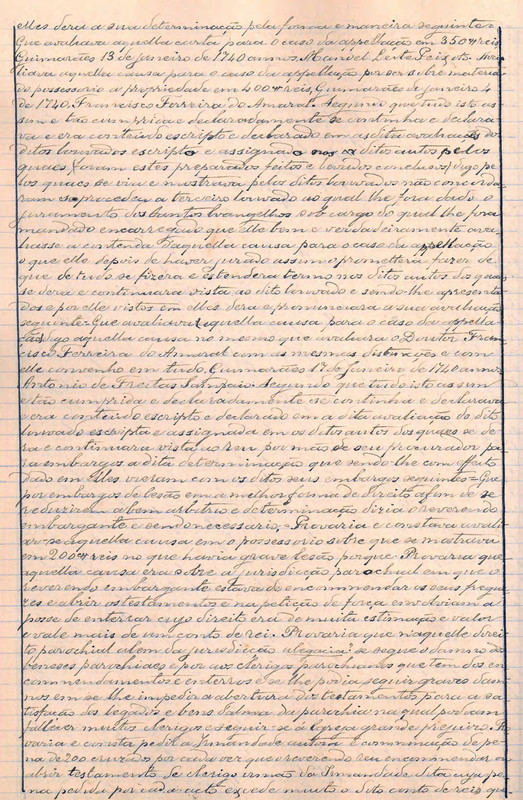 elles dera a sua determinação pela forma e maneira seguinte=
Que avaliava aquella causa para o caso da appellação em 350$ reis
Guimarães 13 de janeiro de 1740 annos. Manoel Leite Peixoto. Ava-
liava aquella causa para o caso da appellação por ser sobre materia
 o possessorio a propriedade em 400$ reis, Guimarães de janeiro 4
de 1740. Francisco Ferreira do Amaral. Segundo que tudo isto as-
sim e tão cumprida e declaradamente se continha e declara-
va e era conteudo escripto e declarado em as ditas avaliações dos
ditos louvados escripto e assignado nos ditos autos pelos
quaes (foram estes preparados feitos e levados conclusos) digo pe-
los quaes se viu e mostrava pelos ditos louvados não concorda-
ram se procedeu a terceiro louvado ao qual lhe fora dado o
juramento dos Santos Evangelhos sob cargo do qual lhe fora
mandado encarregado que elle bem e verdadeiramente ava-
liasse a contenda daquella causa para o caso da appellação
o que elle depois de haver jurado assim o promettera fazer de
que de tudo se fizera e estendera termo nos ditos autos dos quaes
se dera e continuara vista ao dito louvado e sendo-lhe apresenta-
dos e por elle vistos em elles dera e pronunciara a sua avaliação
seguinte: Que avaliava (aquella causa para o caso da appella-
ção) digo aquella causa no mesmo que avaliara o Doutor Fran-
cisco Ferreira do Amaral com as mesmas distincções e com
elle convenho em tudo. Guimarães 17 de janeiro de 1740 annos
Antonio de Freitas Sampaio. Segundo que tudo isto assim
e tão cumprida e declaradamente se continha e declarava
e era conteudo escripto e declarado em a dita avaliação do dito
louvado escripta e assignada em os ditos autos dos quaes se de-
ra e continuara vista ao reu por mão de seu procurador pa-
ra embargos a dita determinação que sendo-lhe com effeito
dado em elles vieram com os ditos seus embargos seguintes= Que
por embargos de lesão em a melhor forma de Direito afim de se
reduzirem a bem arbitrio e determinação diria o reverendo
embargante e sendo necessario,= Provaria e constava avali-
ar-se aquella causa em o possessorio sobre que se mostrava
em 200$ reis no que havia grave lesão porque= Provaria que
aquella causa era sobre a jurisdicção parochial em que o
reverendo embargante estava de encommendar os seus fregue-
zes e abrir os testamentos e na petição de força envolviam a
posse de enterrar cujo direito era de muita estimação e valor
e vale mais de um conto de rei. Provaria que naquelle direi-
to parochial alem da jurisdicção se segue o damno dos
beneses parochiaes e por aos clerigos parochianos que tem dos en-
commendamentos e enterros e se lhe podia seguir graves dam-
nos em se lhe impedir a abertura dos testamentos para a sa-
tisfação dos legados e bens d'alma da parochia na qual podiam
fallecer muitos clerigos e seguir-se á Egreja grande prejuizo. Pro-
varia e consta pedir a Irmandade autora a comminação de pe-
na de 200 cruzados por cada vez que o reverendo reu encommendar ou
abrir testamento de clerigo irmão da Irmandade dita cuja pe-
na pedida por cada acto excede muito o dito conto de reis que